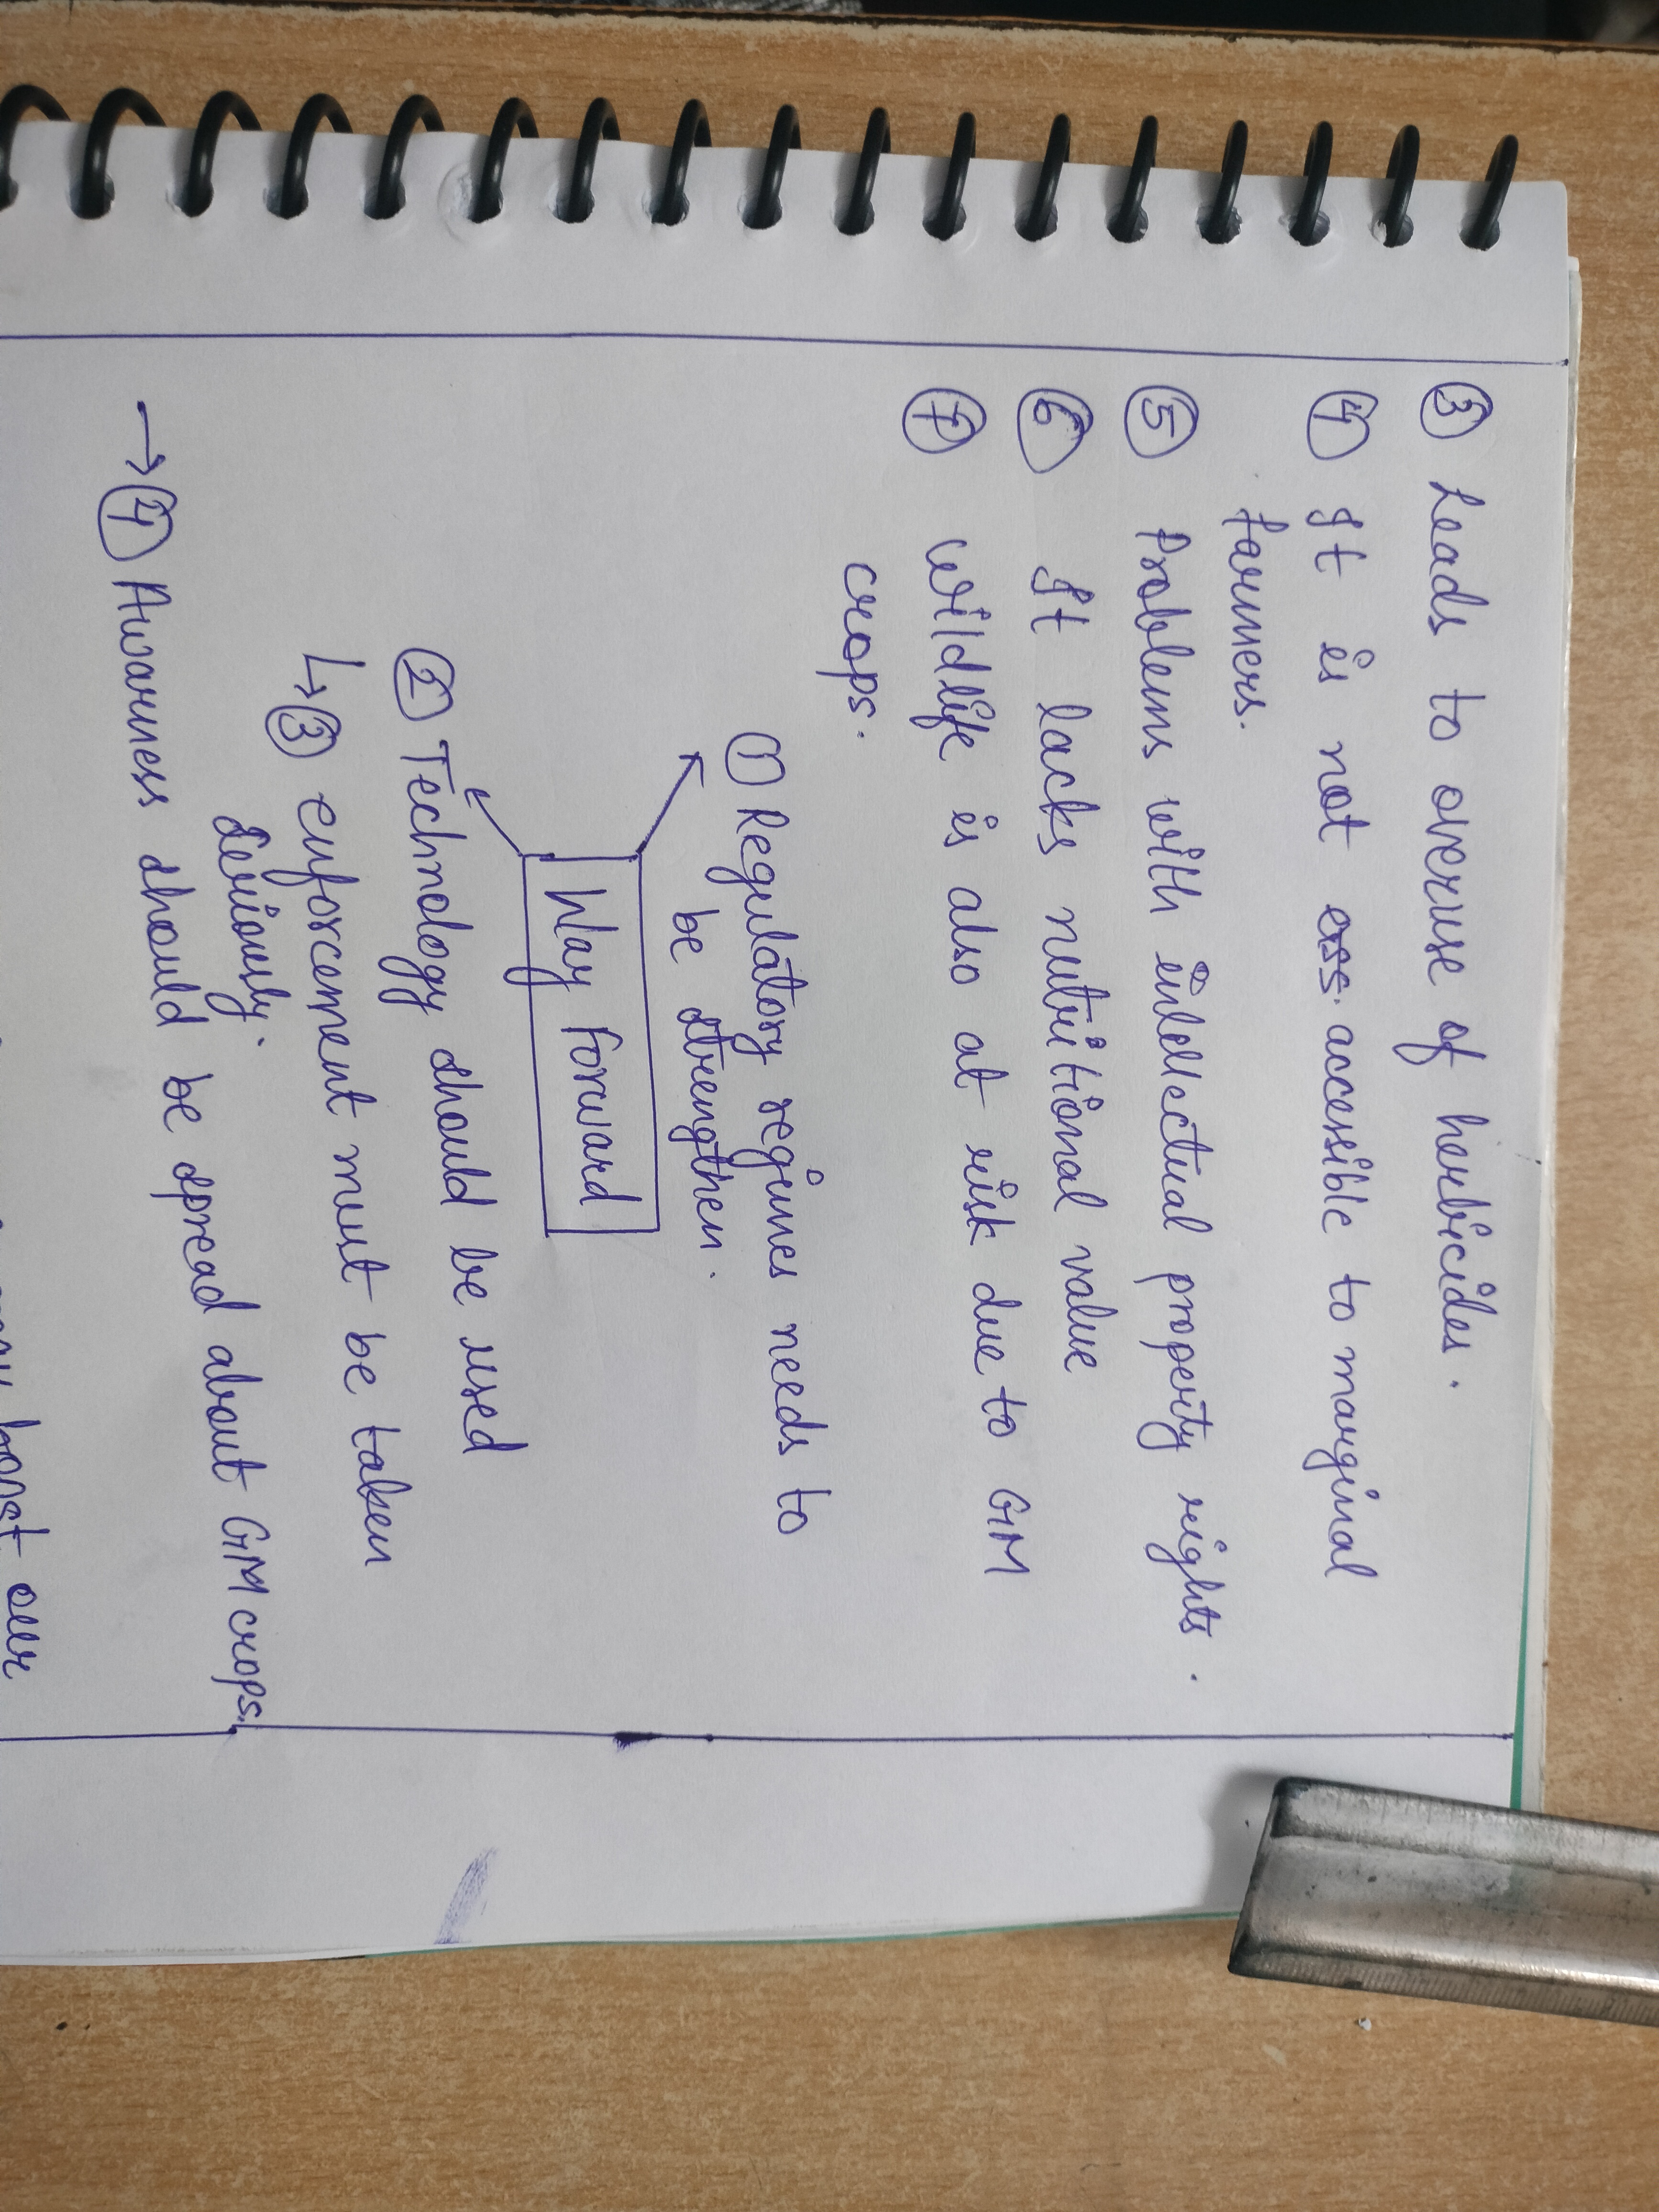 ③ Leads to overuse of herbicides.
④ It is not ess. accessible to marginal
farmers.
⑤ Problems with intellectual property rights.
⑥ It lacks nutritional value
⑦ Wildlife is also at risk due to GM
crops.
① Regulatory regimes needs to
be strengthen.
Way Forward
② Technology should be used
↳ ③ enforcement must be taken
seriously.
→ ④ Awarness should be spread about GM crops.
boost our